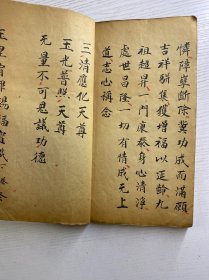 憐障寧斷除冀功成而滿願
吉祥駢集獲增福以延齡九
祖超昇一門康泰身心清淨
處世昌隆一切有情咸无上
道志心稱念
三清應化天尊
玉光普照天尊
无量不可思議功德